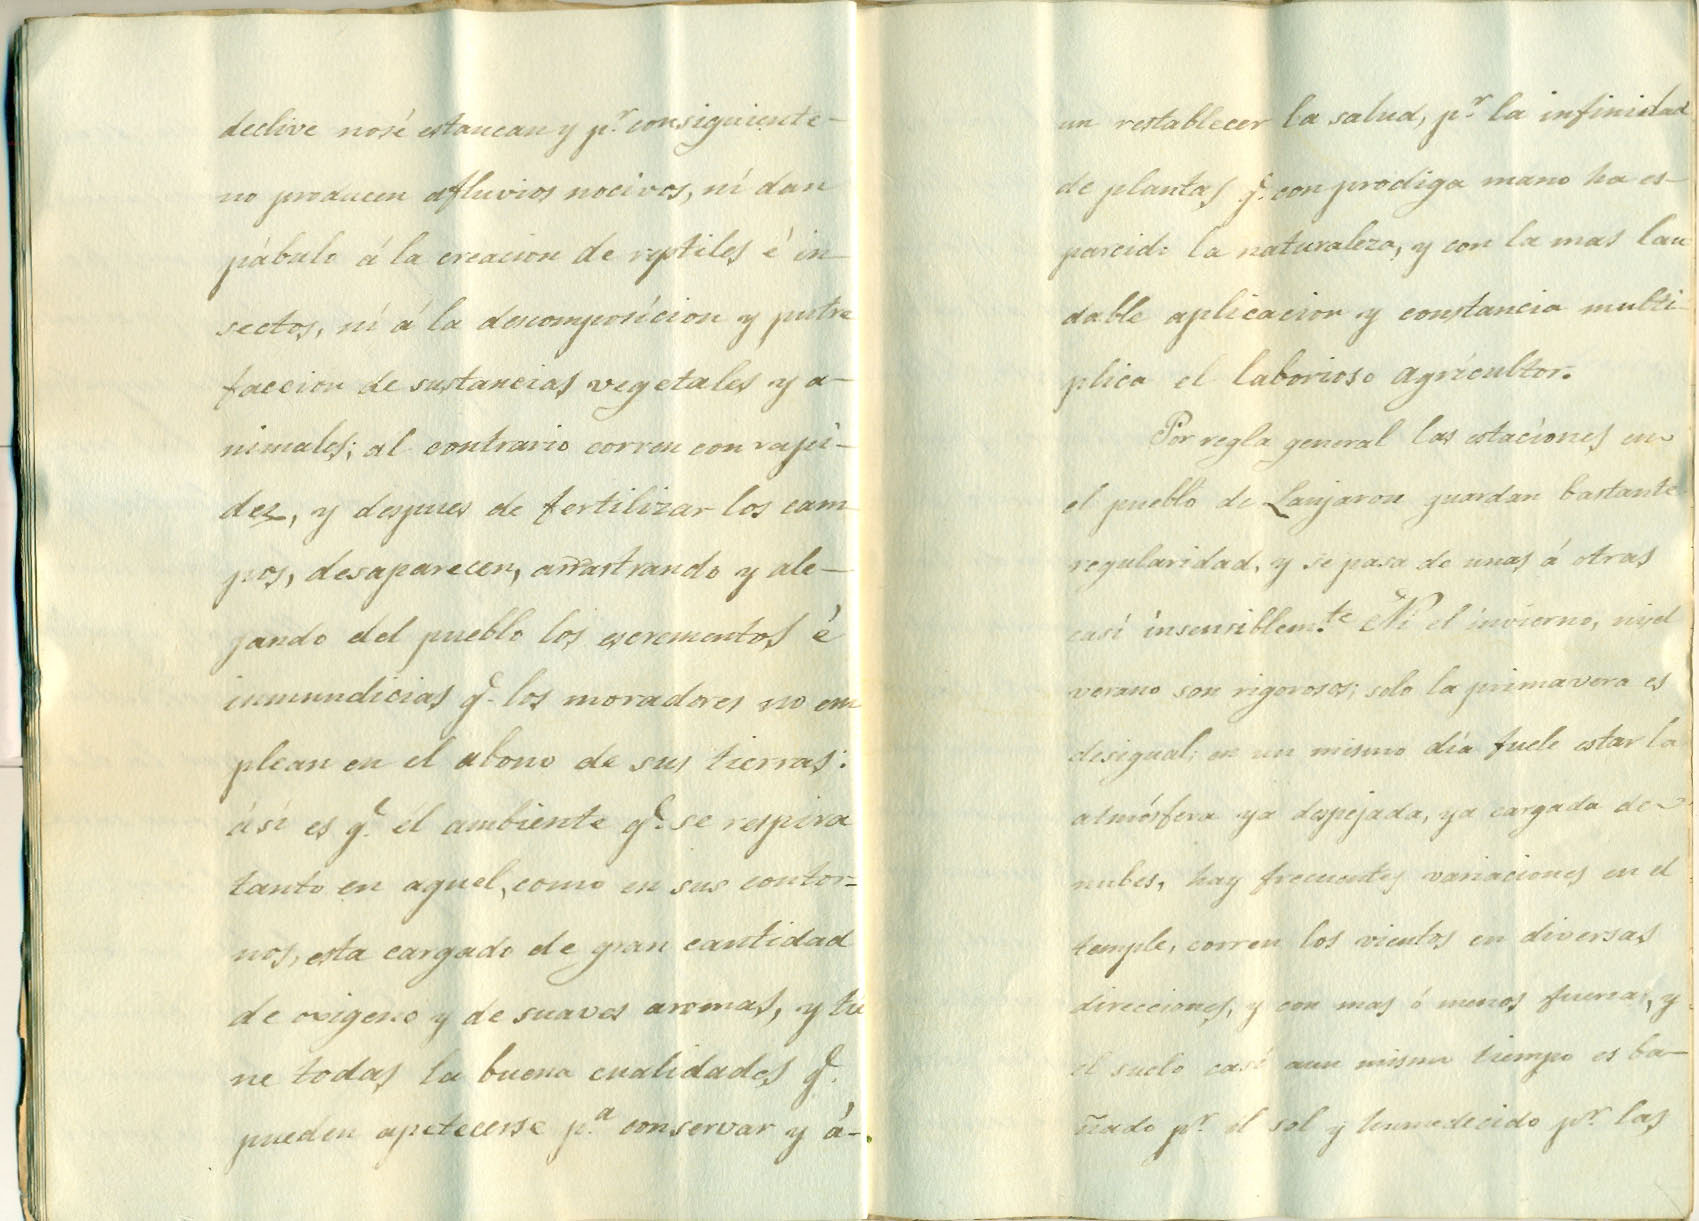 declive nosé estancan y p.r consiguiente-
no producen efluvios nocivos, ni dan
pábulo á la creacion de reptiles é in-
sectos, ni á la descomposicion y putre
faccion de sustancias vegetales y a-
nimales; al contrario corren con rapi-
dez, y despues de fertilizar los cam
pos, desaparecen, arrastrando y ale-
jando del pueblo los escrementos é
inmundicias q.e los moradores no em
plean en el abono de sus tierras:
ási es q.e él ambiente q.e se respira
tanto en aquel, como en sus contor=
nos, esta cargado de gran cantidad
de oxigeno y de suaves aromas, y tie
ne todas la buena cualidades q.e
pueden apetecerse p.a conservar y á-
un restablecer la salud, p.r la infinidad
de plantas q.e con prodiga mano ha es-
parcido la naturaleza, y con la mas lau
dable aplicacion y constancia multi-
plica el laborioso agricultor.
Por regla general las estaciones en
el pueblo de Lanjaron guardan bastante
regularidad, y se pasa de unas á otras
casi insensiblem.te Ni el invierno, ni el
verano son rigorosos; solo la primavera es
desigual; en un mismo día suele estar la
atmósfera ya despejada, ya cargada de
nubes, hay frecuentes variaciones en el
temple, corren los vientos en diversas
direcciones, y con mas ó menos fuerza, y
el suelo casi aun mismo tiempo es ba-
ñado p.r el sol y humedecido p.r las